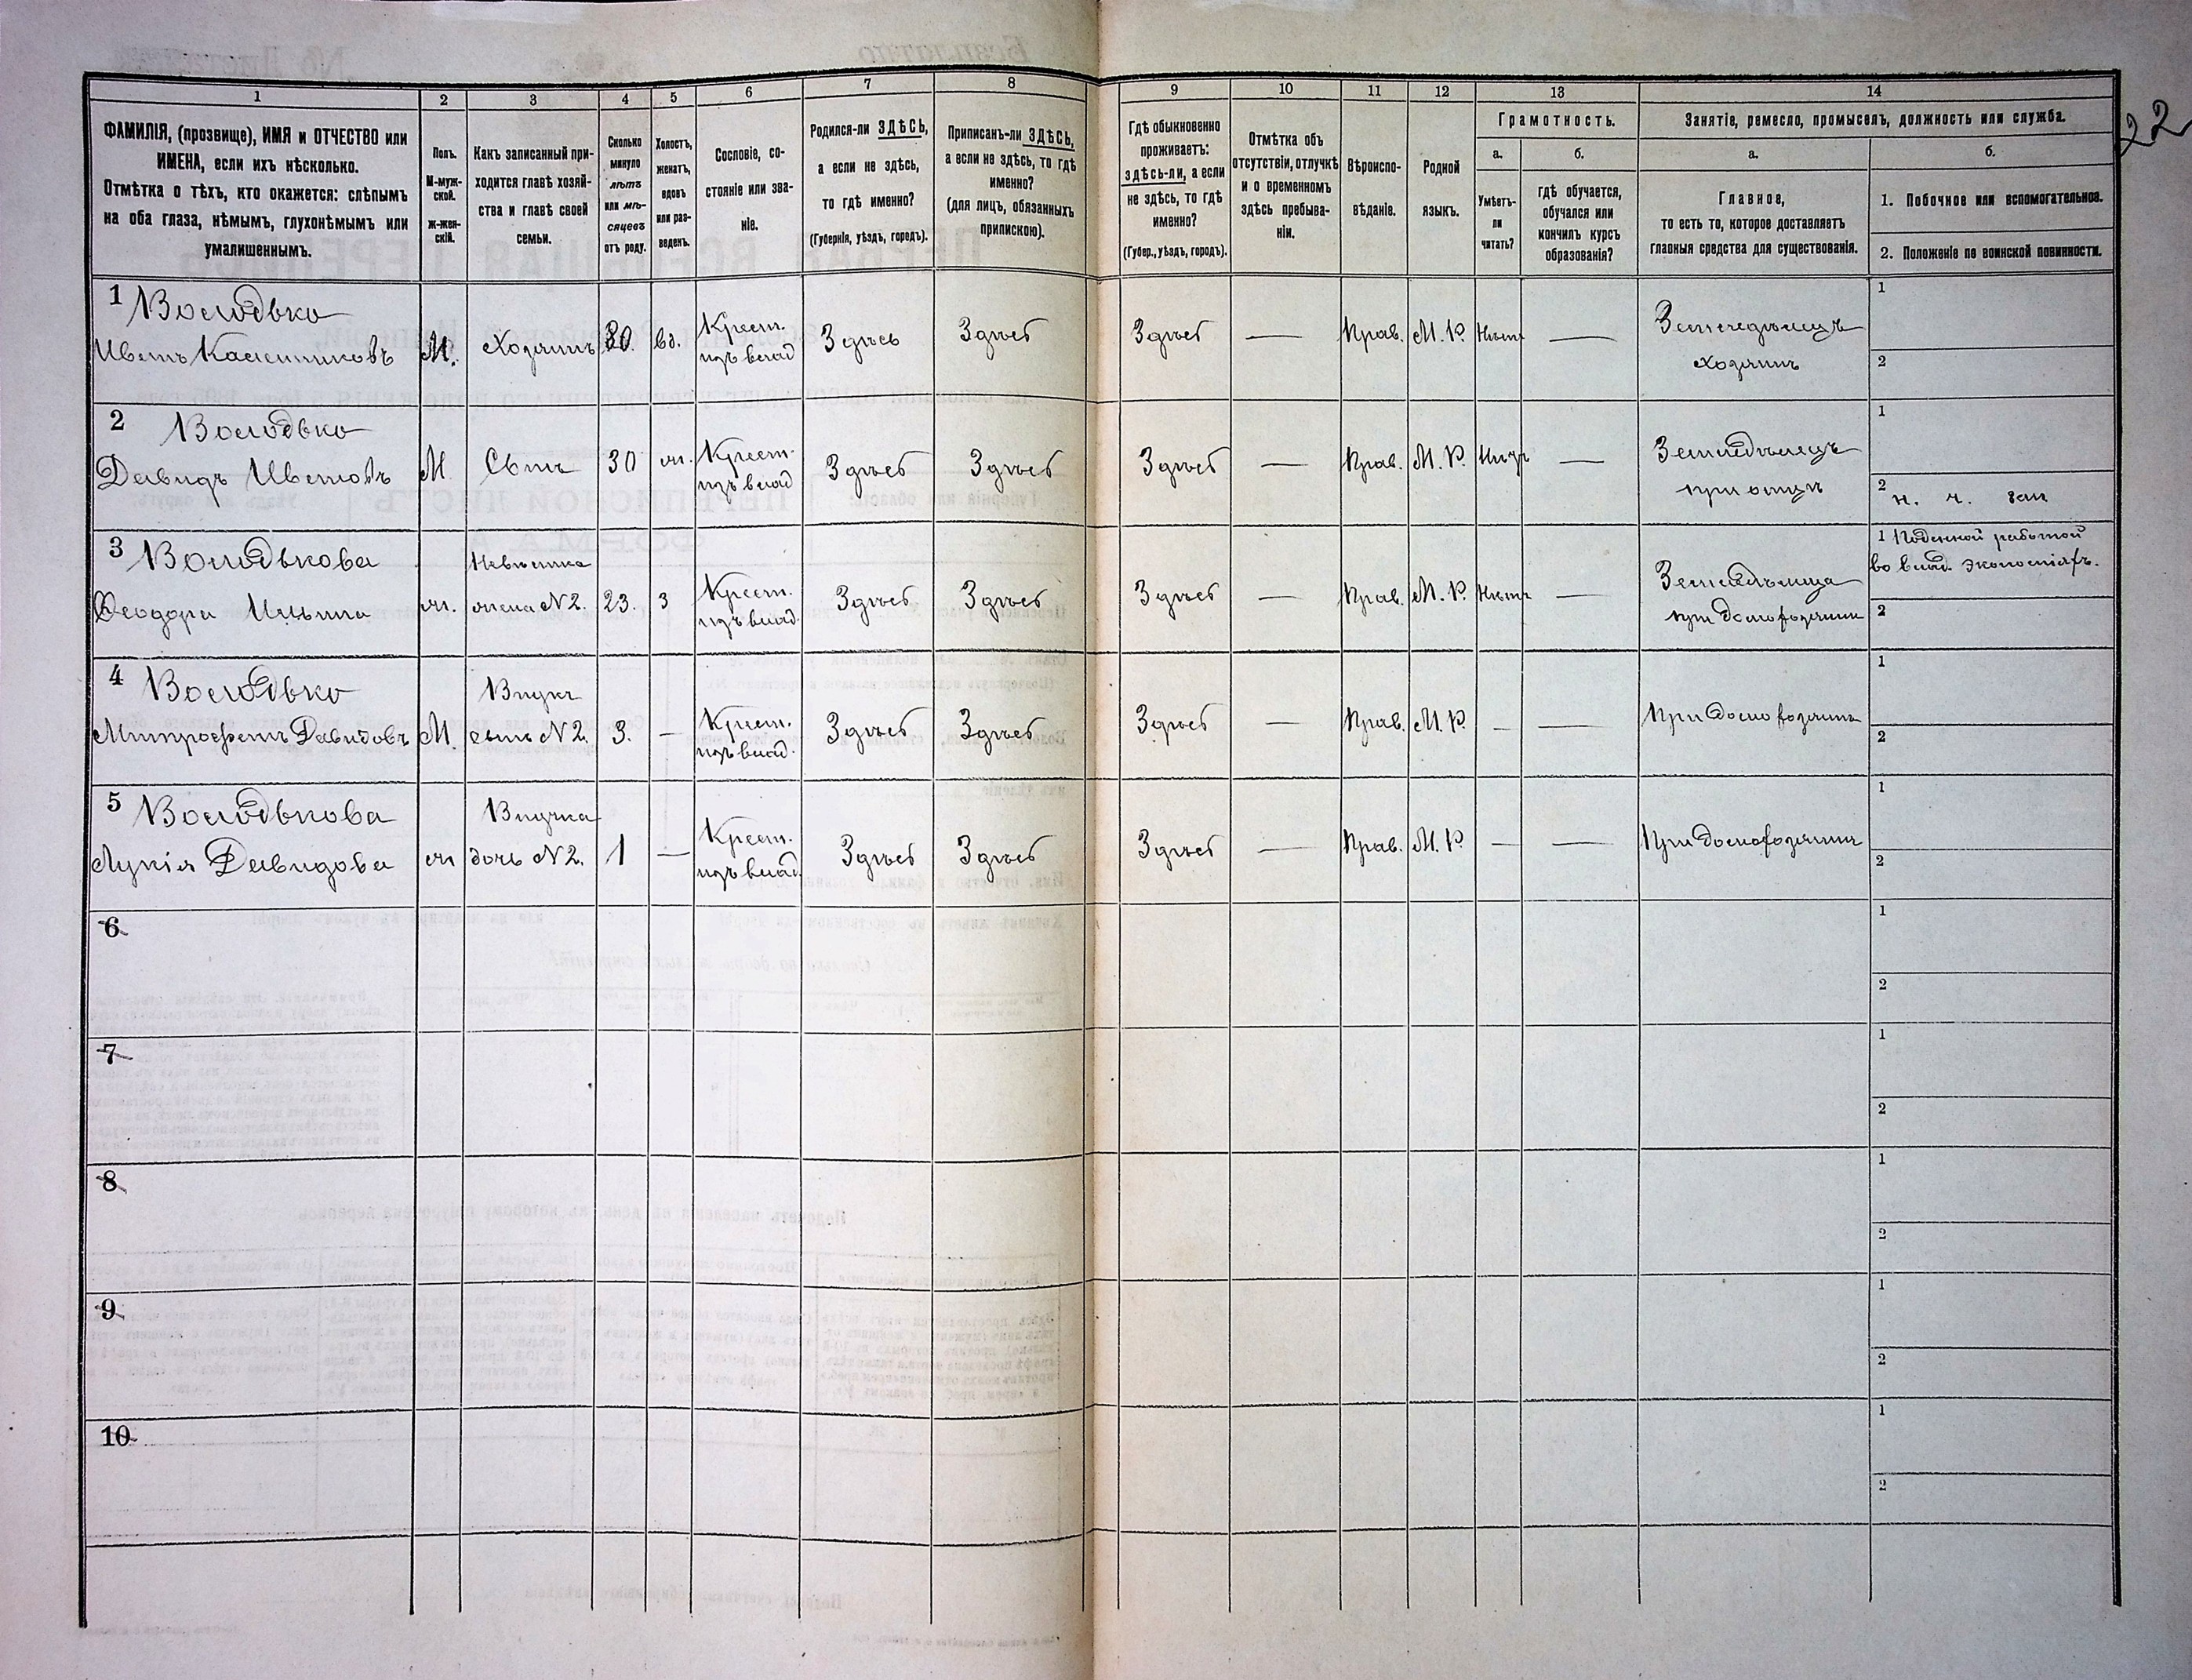 22
1 2 3 4 5 6 7 8 9 10 11 12 13 14
ФАМИЛІЯ, (прозвище), ИМЯ и ОТЧЕСТВО или
ИМЕНА, если ихъ нѣсколько.
Отмѣтка о тѣхъ, кто окажется: слѣпымъ
на оба глаза, нѣмымъ, глухонѣмымъ или
умалишеннымъ.
Полъ.
М-муж-
ской.
Ж-жен-
скій.
Какъ записанный при-
ходится главѣ хозяй-
ства и главѣ своей
семьи.
Сколько
минуло
лѣтъ
или мѣ-
сяцевъ
отъ роду.
Холостъ,
женатъ,
вдовъ
или раз-
веденъ.
Сословіе, со-
стояніе или зва-
ніе.
Родился-ли ЗДѢСЬ,
а если не здѣсь,
то гдѣ именно?
(Губернія, уѣздъ, городъ).
Приписанъ-ли ЗДѢСЬ,
а если не здѣсь, то гдѣ
именно?
(для лицъ, обязанныхъ
припискою).
Гдѣ обыкновенно
проживаетъ:
здѣсь-ли, а если
не здѣсь, то гдѣ
именно?
(Губер., уѣздъ, городъ).
Отмѣтка объ
отсутствіи, отлучкѣ
и о временномъ
здѣсь пребыва-
ніи.
Вѣроиспо-
вѣданіе.
Родной
языкъ.
Грамотность.
а.
Умѣетъ-
ли
читать?
б.
гдѣ обучается,
обучался или
кончилъ курсъ
образованія?
Занятіе, ремесло, промыселъ, должность или служба.
а.
Главное,
то есть то, которое доставляетъ
главныя средства для существованія.
б.
1. Побочное или вспомогательное.
2. Положеніе по воинской повинности.
1 Володько
Иванъ М. Хозяинъ вд. Крест. изъ влад. Здѣсь Здѣсь Здѣсь — Прав. М. Р. Нѣтъ — Земледѣлецъ хозяинъ 1
2
2 Володько
Давидъ Ивановъ М Сынъ 30 Крест. изъ влад Здѣсь Здѣсь Здѣсь — Прав. М. Р. — Земледѣлецъ при отцѣ 1
2
3 Володькова
Феодора Ильина ж. Невѣстка жена N 2. 23. З Крест. изъ влад. Здѣсь Здѣсь Здѣсь — Прав. М. Р. Нѣтъ — при домохозяинѣ 1 Поденной работой
во влад. экономіяхъ.
2
4 Володько
Митрофанъ Давидовъ М. Внукъ сынъ N 2. 3. — Крест. изъ влад. Здѣсь Здѣсь Здѣсь — Прав. М. Р. — — При домохозяинѣ 1
2
5 Володькова
Лукія Давидова ж Внучка дочь N 2. 1 — Крест. изъ влад. Здѣсь Здѣсь Здѣсь — Прав. М. Р. — — При домохозяинѣ 1
2
6 1
2
7 1
2
8 1
2
9 1
2
10 1
2